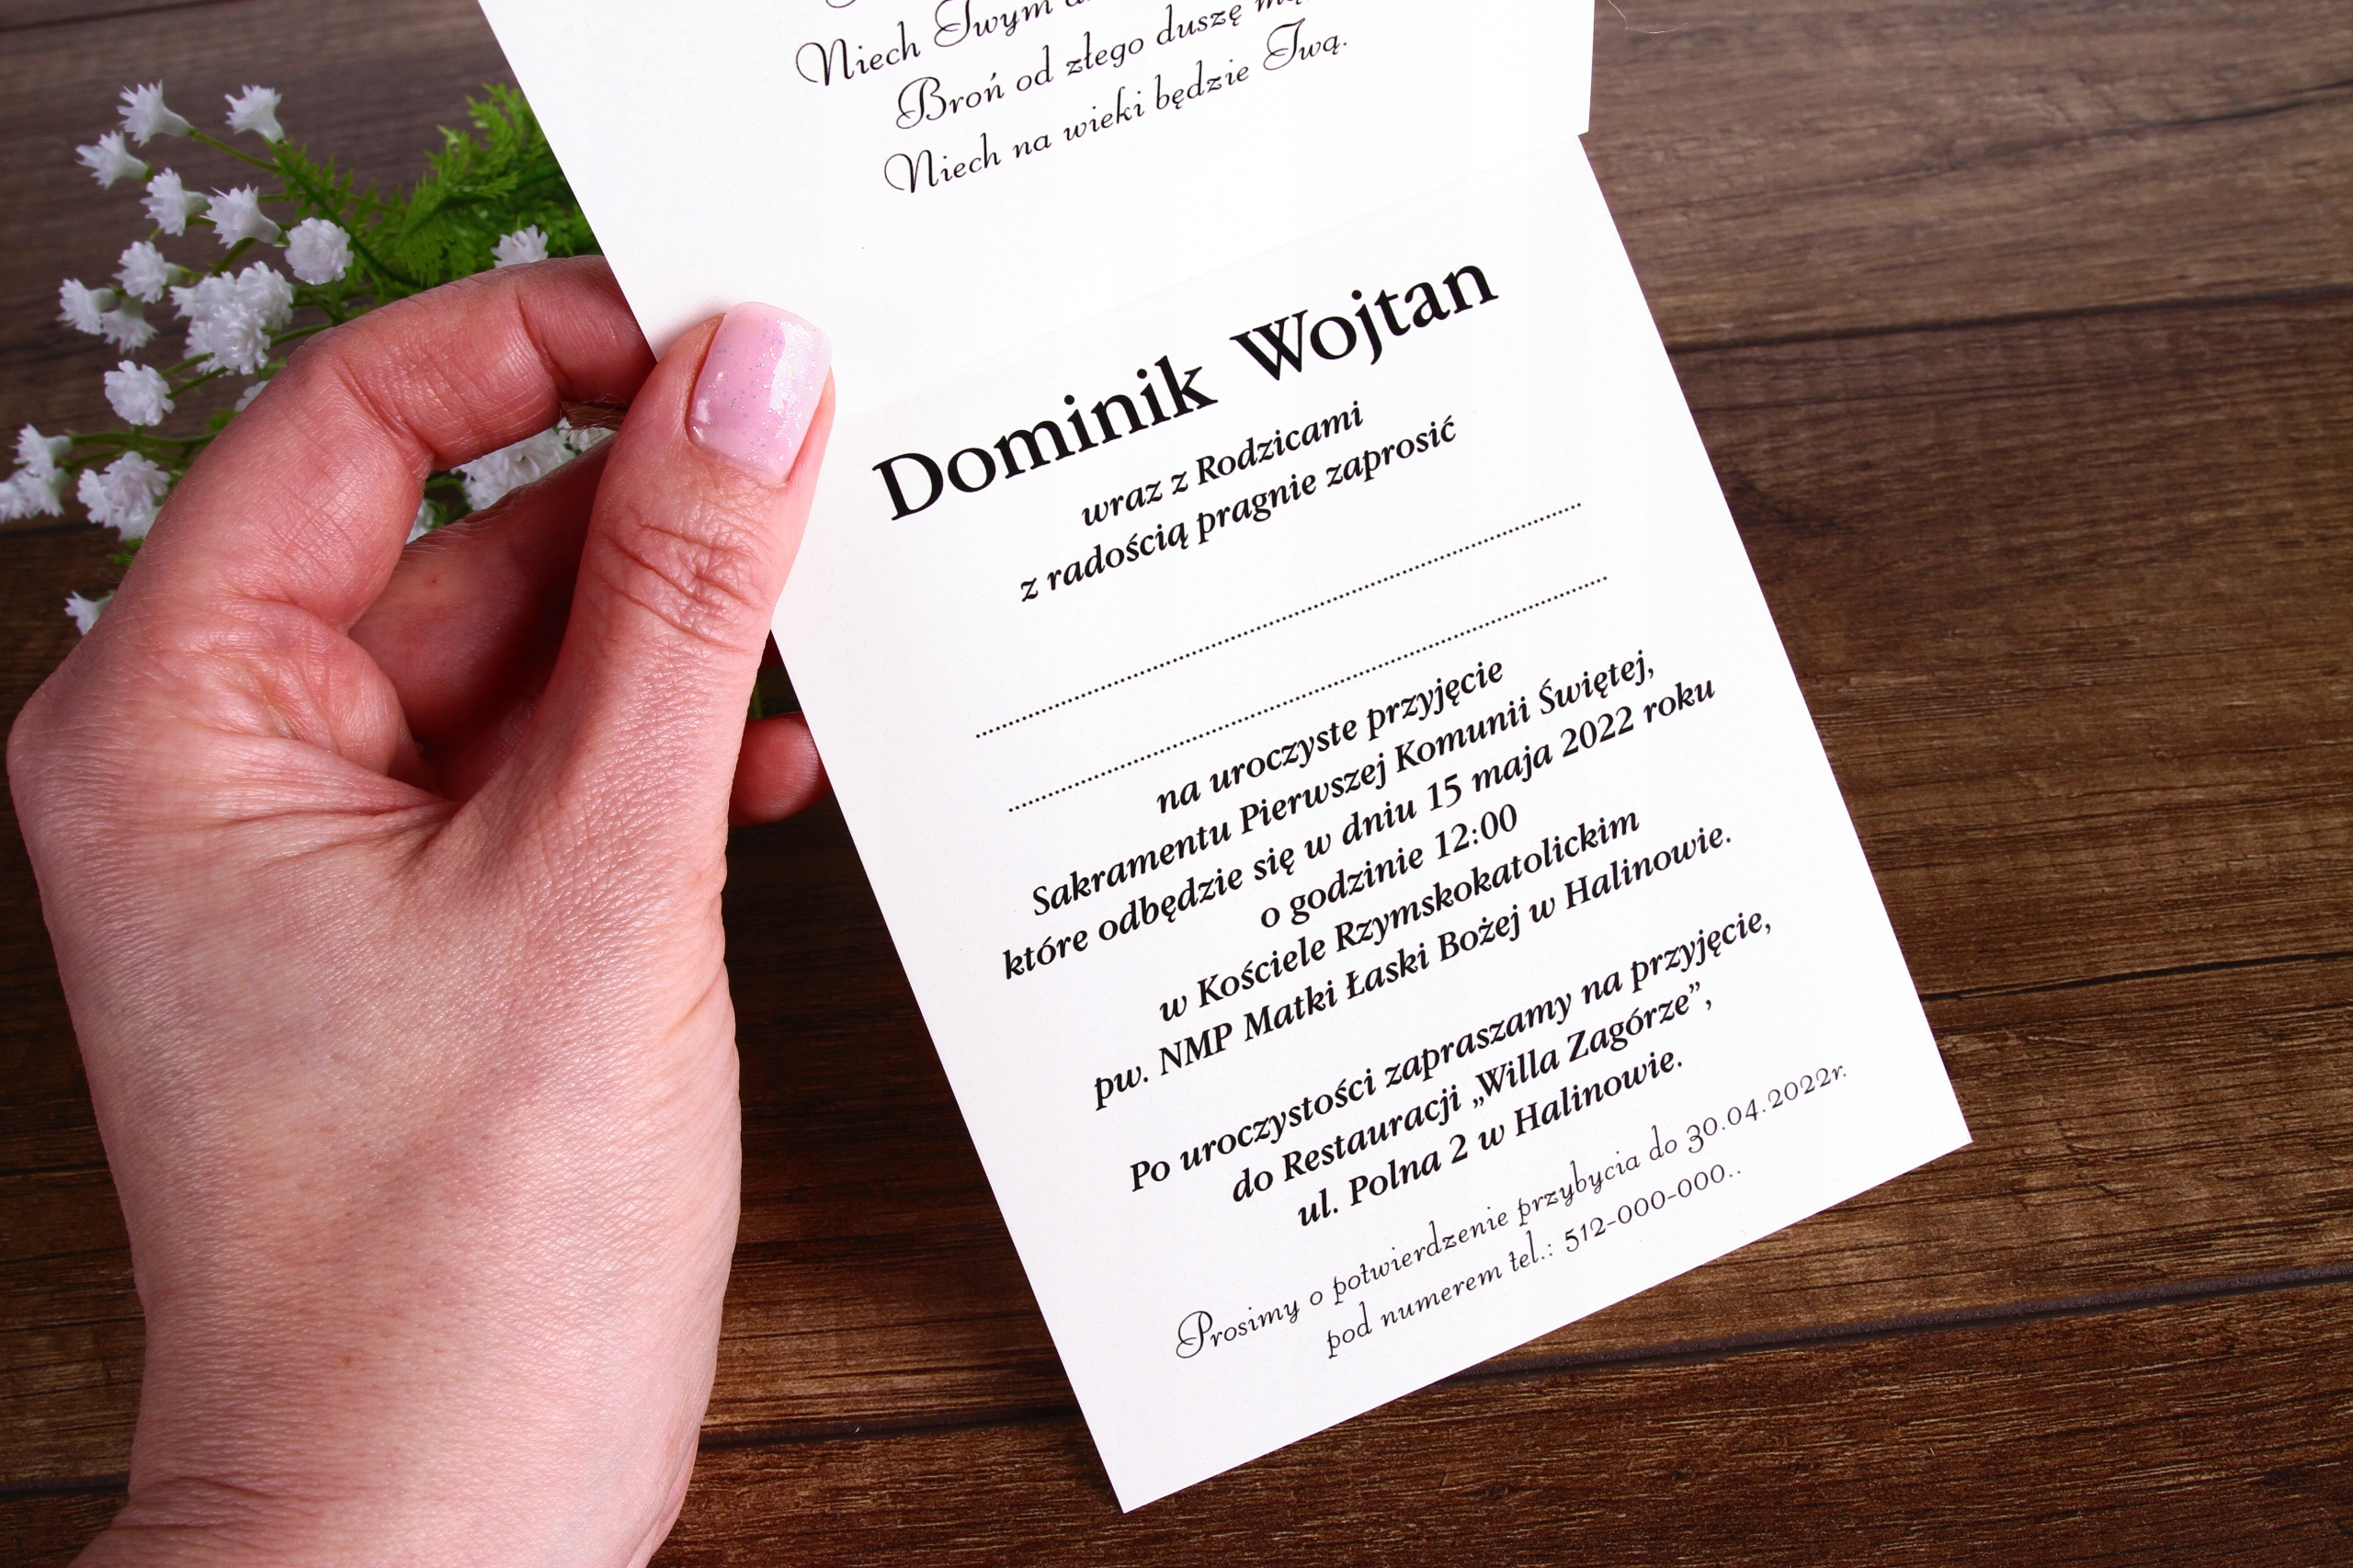 Niech Twym
Broń od złego duszę
Niech na wieki będzie Twą.
Dominik Wojtan
wraz z Rodzicami
z radością pragnie zaprosić
na uroczyste przyjęcie
Sakramentu Pierwszej Komunii Świętej,
które odbędzie się w dniu 15 maja 2022 roku
o godzinie 12:00
w Kościele Rzymskokatolickim
pw. NMP Matki Łaski Bożej w Halinowie.
Po uroczystości zapraszamy na przyjęcie,
do Restauracji „Willa Zagórze”,
ul. Polna 2 w Halinowie.
Prosimy o potwierdzenie przybycia do 30.04.2022r.
pod numerem tel.: 512-000-000..